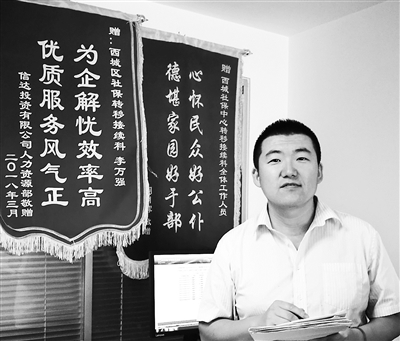 赠：西城区社保转移接续科 李万强
为企解忧效率高
优质服务风气正
信达投资有限公司人力资源部敬赠
二〇一八年三月
赠 西城社保中心转移接续科全体工作人员
心怀民众好公仆
德堪家园好干部